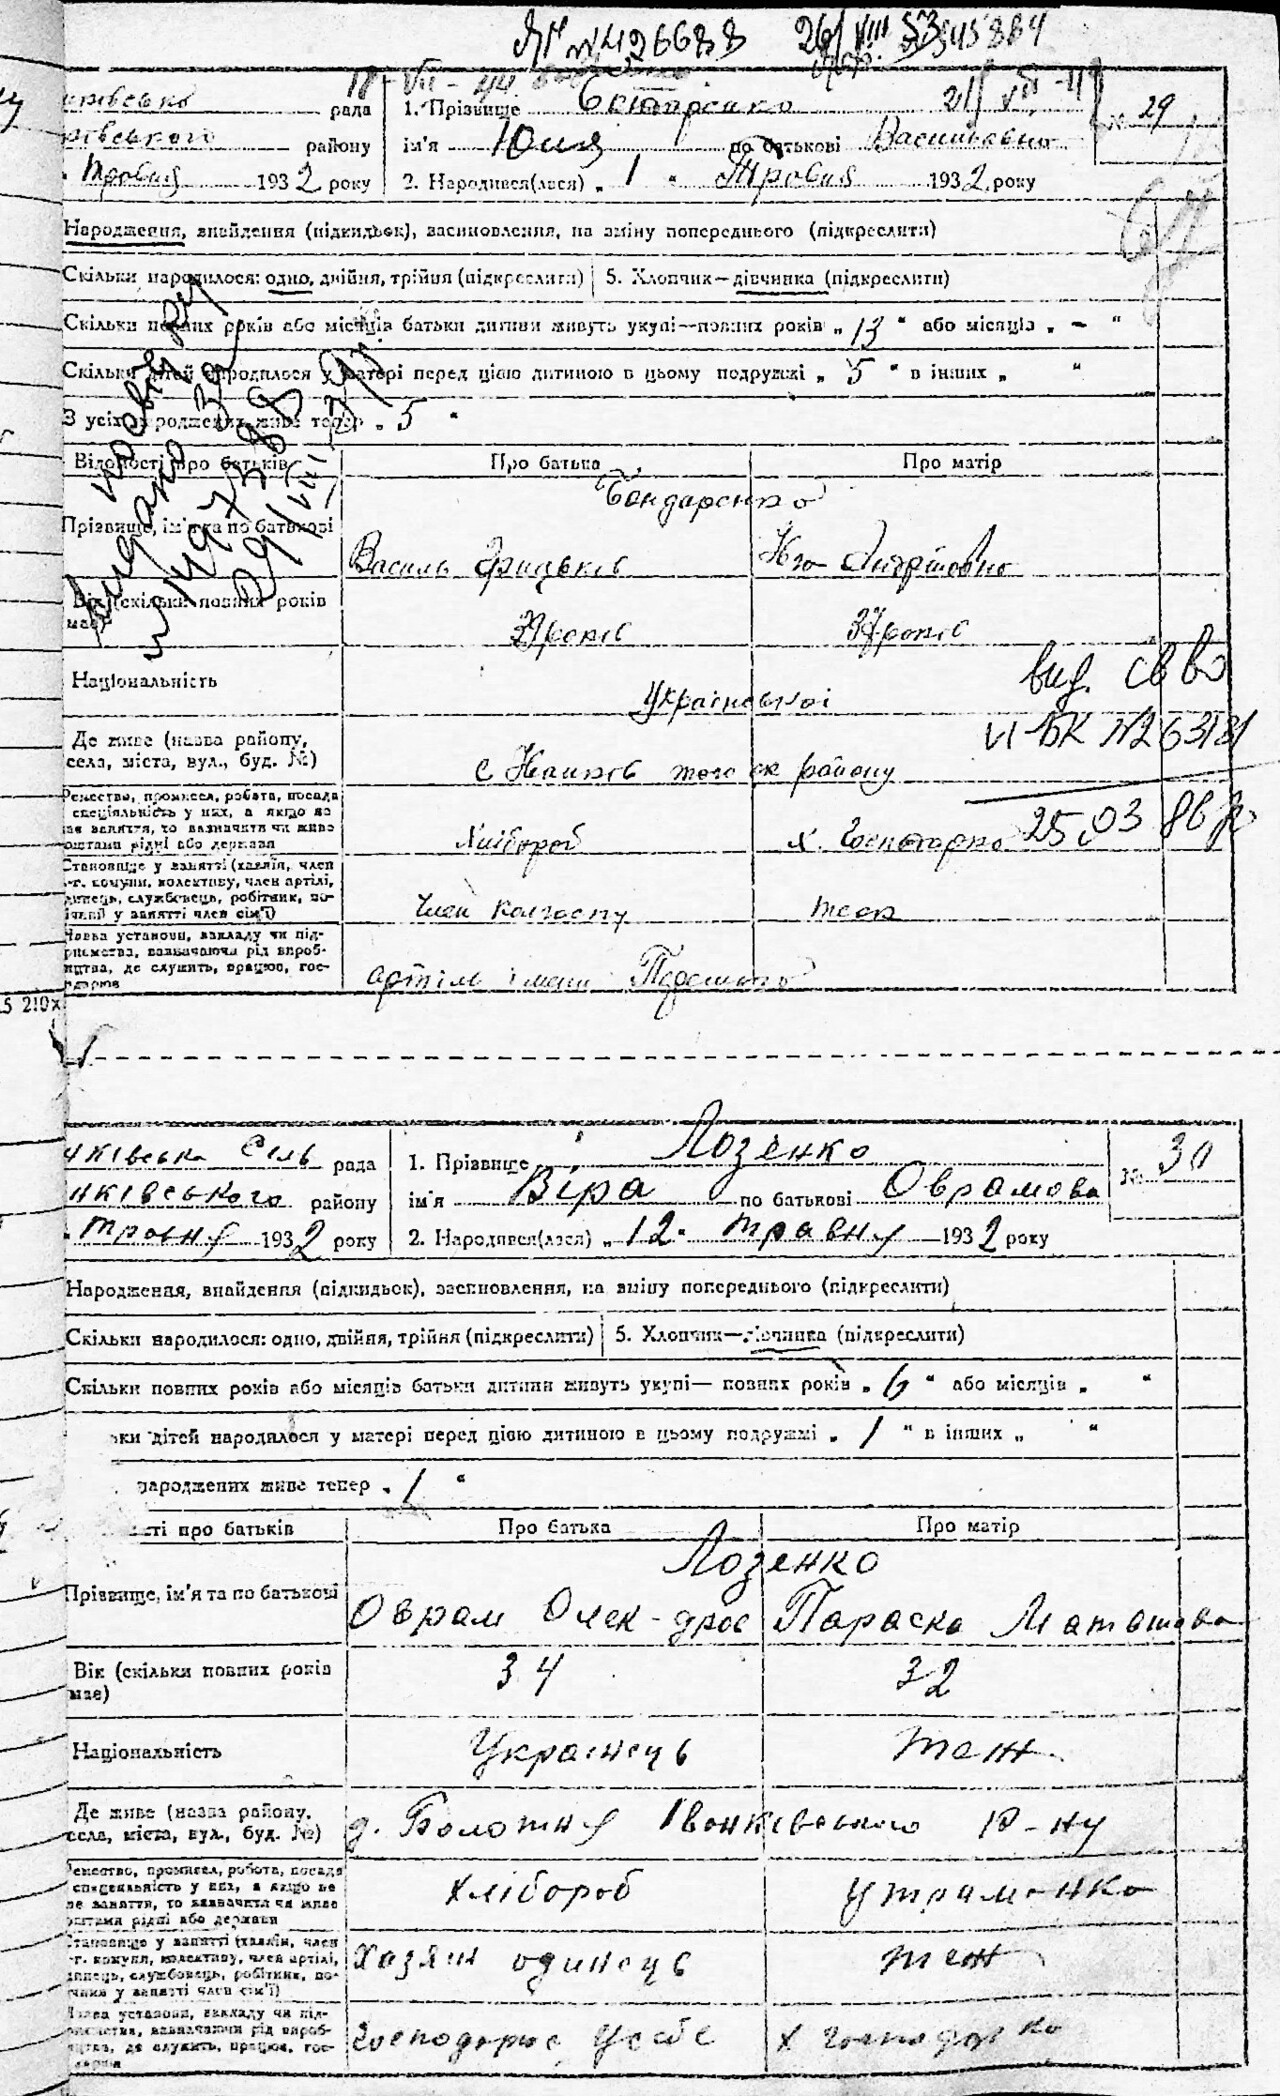 26/VIII 53
рада
району
193 2 року
1. Прізвище Бондаренко
ім'я Юлія по батькові Васильевна
2. Народився(лася) „ 1 “ Травня 1932 року
№ 29
Народження, знайдення (підкидьок), засиновлення, на зміну попереднього (підкреслити)
Скільки народилося: одно, двійня, трійня (підкреслити) 5. Хлопчик—дівчинка (підкреслити)
Скільки повних років або місяців батьки дитини живуть укупі—повних років „ 13 “ або місяців „ – “
Скільки дітей народилося у матері перед цією дитиною в цьому подружжі „ 5 “ в інших „ “
З усіх народжених живе тепер „ 5 “
Відомості про батьків Про батька Про матір
Бондаренко
Прізвище, ім'я та по батькові
Василь Грицьків
Вік (скільки повних років має)
39 років 37 років
Національність
Української
вид. св во
Де живе (назва району, села, міста, вул., буд. №)
того ж району
VI-БК №263181
25.03 86 р
Ремество, промисел, робота, посада
спеціяльність у них, а якщо не
має заняття, то зазначити чи живе
коштами рідні або держави
Хлібороб х. Господарка
Становище у занятті (хазяїн, член
с.-г. комуни, колективу, член артілі,
одинець, службовець, робітник, по-
мічний у занятті член сім'ї)
Член колгоспу теж
Назва установи, закладу чи під-
приємства, зазначаючи рід вироб-
ництва, де служить, працює, гос-
подарює
артіль імени
5 210х
нківська Сіль рада
нківського району
травня 1932 року
1. Прізвище Лозенко
ім'я Віра по батькові Оврамова
2. Народився(лася) „ 12 “ травня 1932 року
№ 30
Народження, знайдення (підкидьок), засиновлення, на зміну попереднього (підкреслити)
Скільки народилося: одно, двійня, трійня (підкреслити) 5. Хлопчик—дівчинка (підкреслити)
Скільки повних років або місяців батьки дитини живуть укупі— повних років „ 6 “ або місяців „ “
ьки дітей народилося у матері перед цією дитиною в цьому подружжі „ 1 “ в інших „ “
народжених живе тепер „ 1 “
ті про батьків Про батька Про матір
Лозенко
Прізвище, ім'я та по батькові
Оврам Олек-дров Параска
Вік (скільки повних років має)
34 32
Національність
Українець теж
Де живе (назва району, села, міста, вул., буд. №)
д. Болотня Іванківського р-ну
Ремество, промисел, робота, посада
спеціяльність у них, а якщо не
має заняття, то зазначити чи живе
коштами рідні або держави
Хлібороб утриманка
Становище у занятті (хазяїн, член
с.-г. комуни, колективу, член артілі,
одинець, службовець, робітник, по-
мічний у занятті член сім'ї)
Хазяін одинець теж
Назва установи, закладу чи під-
приємства, зазначаючи рід вироб-
ництва, де служить, працює, гос-
подарює
Господарює у себе х господарка